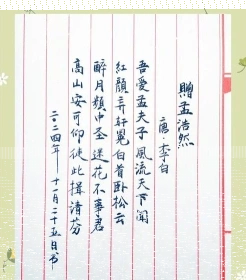 赠孟浩然
唐·李白
吾爱孟夫子风流天下闻
红颜弃轩冕白首卧松云
醉月频中圣迷花不事君
高山安可仰徒此揖清芬
二〇二四年 十一月二十五日书